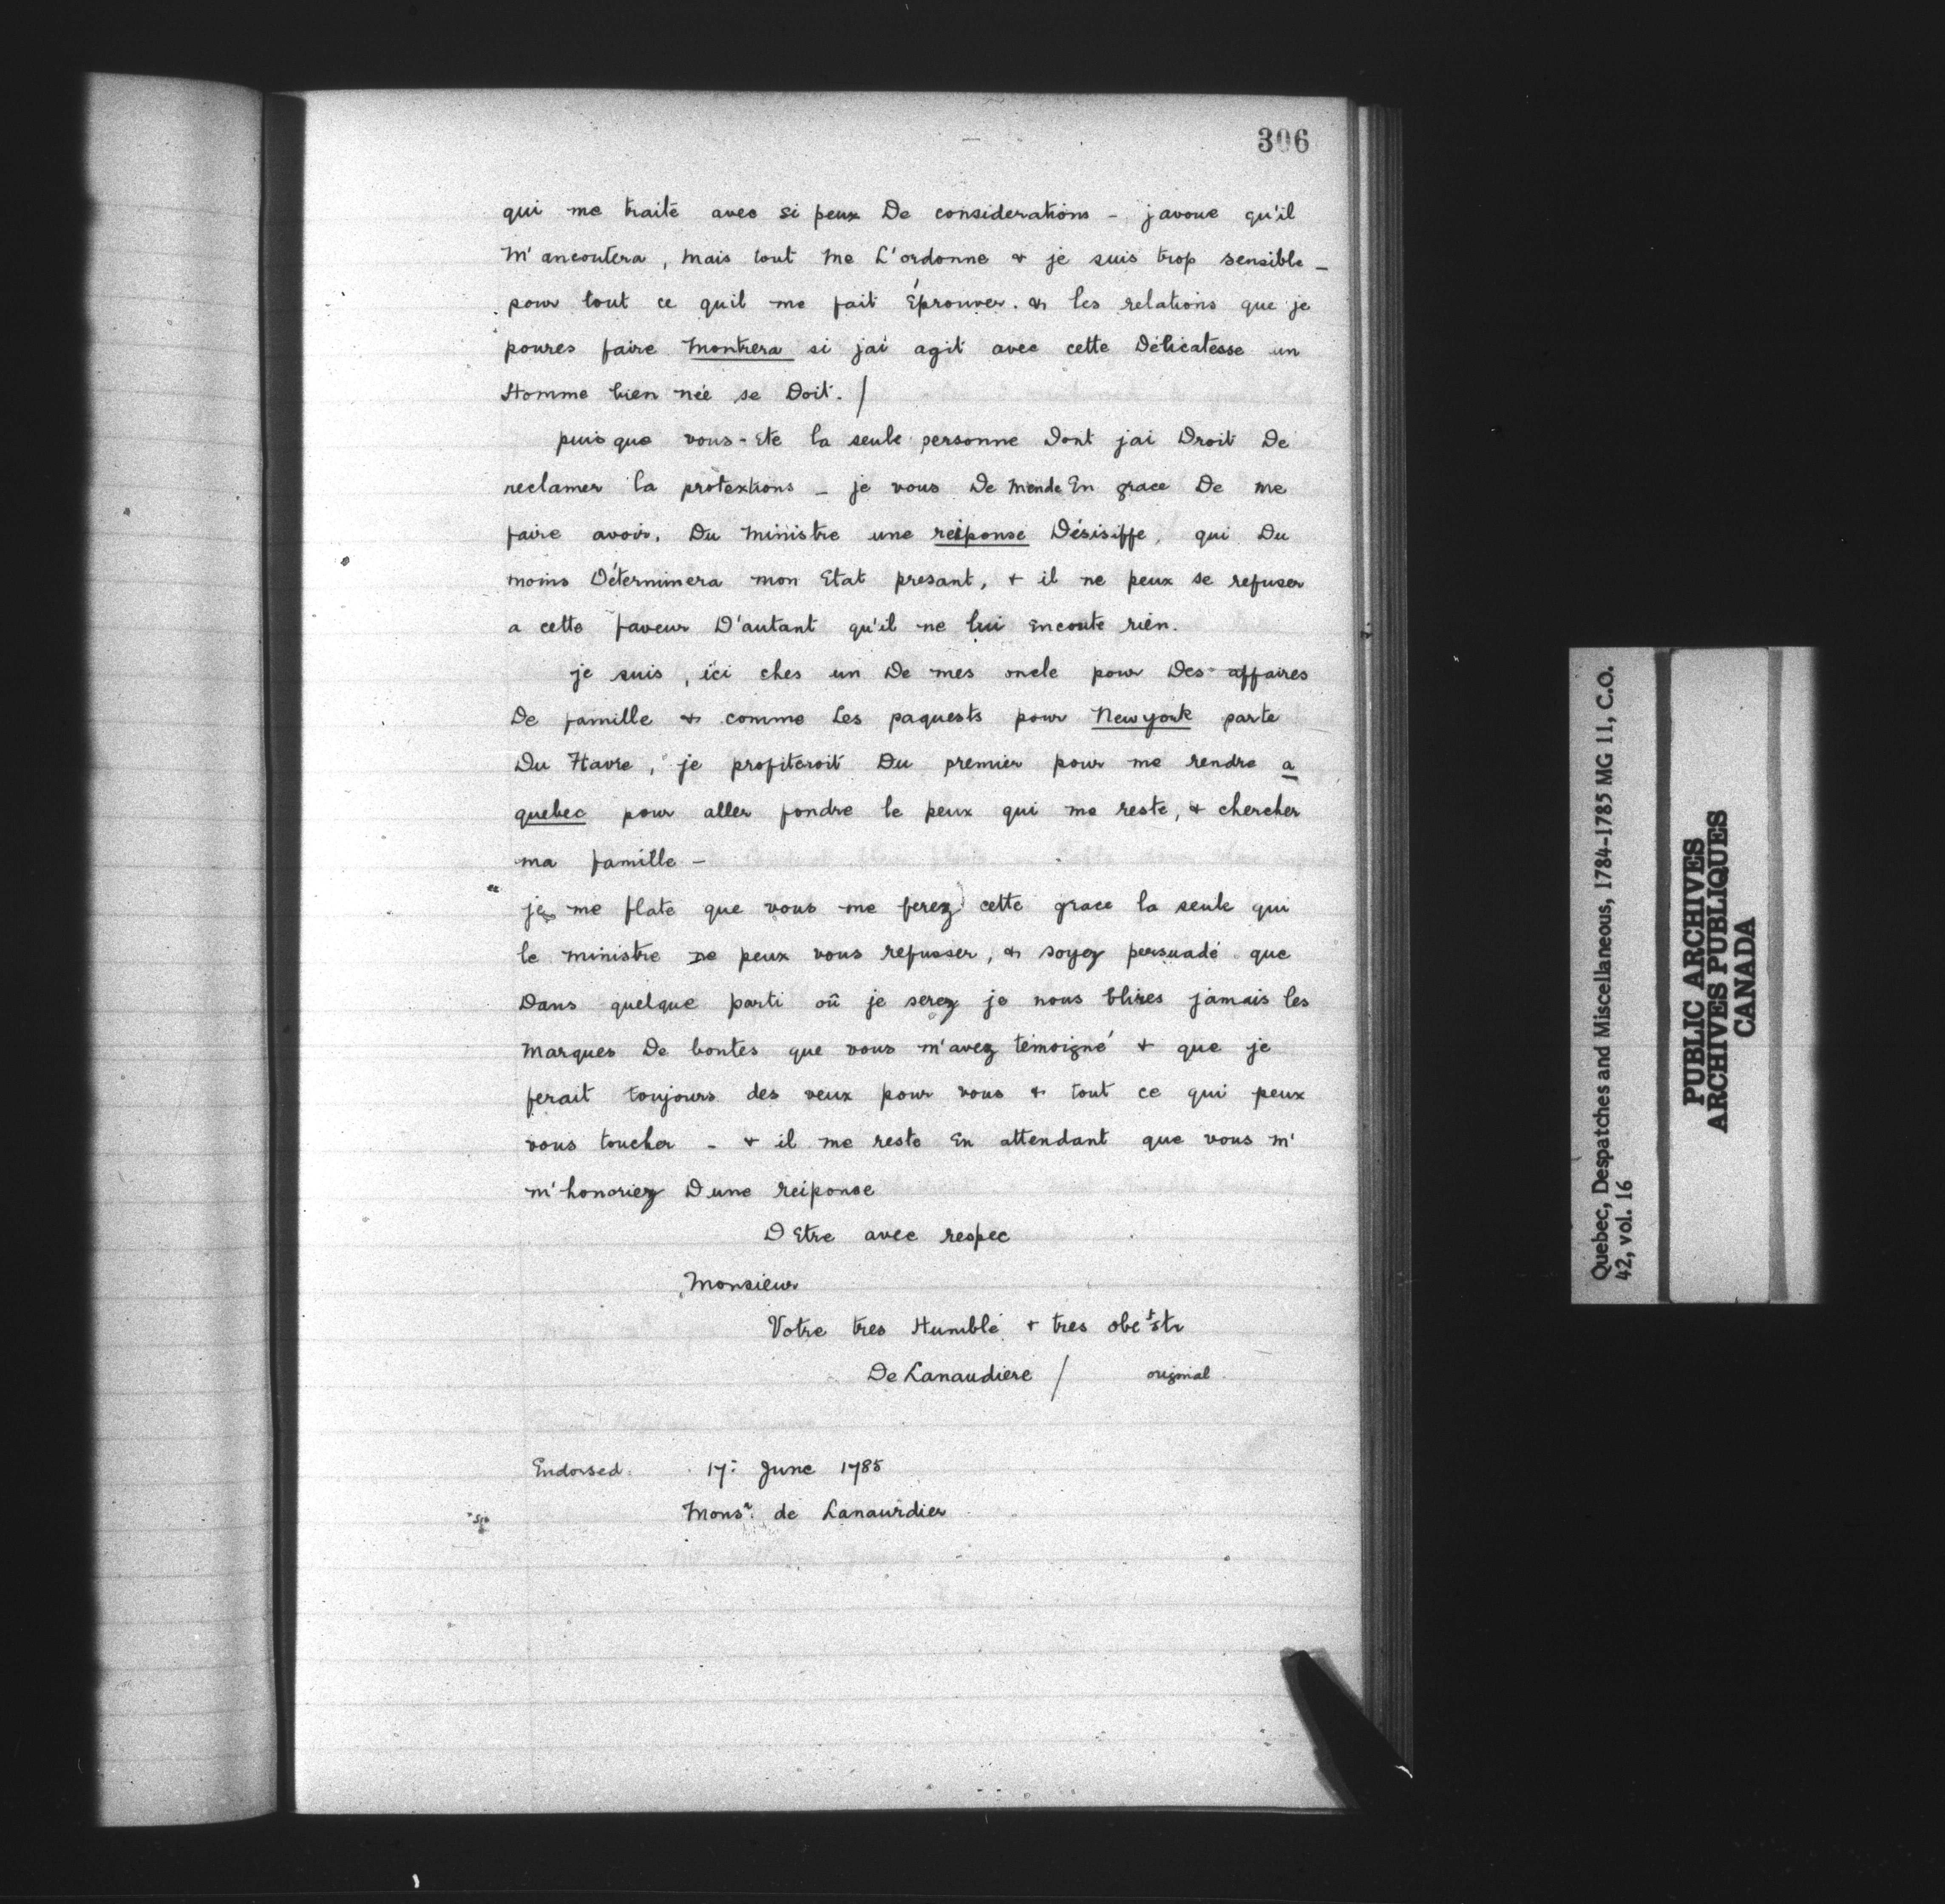 306
qui me traite avec si peux De considerations - javoue qu'il
M'ancoutera, mais tout me L'ordonne & je suis trop sensible -
pour tout ce quil me fait Éprouver. & les relations que je
poures faire montrera si jai agit avec cette Délicatesse un
Homme bien née se Doit. /
puisque vous-Ete la seule personne Dont jai Droit De
reclamer la protextions - je vous De mende En grace De me
faire avoir, Du ministre une reiponse Désisiffe, qui Du
moins Déterminera mon Etat presant, & il ne peux se refuser
a cette faveur D'autant qu'il ne lui Encoute rien.
je suis, ici ches un De mes oncle pour Des affaires
De famille & comme Les paquests pour Newyork parte
Du Havre, je profiteroit Du premier pour me rendre a
quebec pour aller fondre le peux qui me reste, & chercher
ma famille -
je me flate que vous me ferez cette grace la seule qui
le ministre ne peux vous refusser, & soyez persuadé que
Dans quelque parti oû je serez je nous blires jamais les
Marques De bontes que vous m'avez témoigné & que je
ferait toujours des veux pour vous & tout ce qui peux
vous toucher - & il me reste En attendant que vous m'
m'honoriez D une reiponse
D Etre avec respec
Monsieur
Votre tres Humble & tres obe
De Lanaudiere / original
Endorsed. 17: June 1785
Monsr. de Lanaurdier
Quebec, Despatches and Miscellaneous, 1784-1785 MG 11, C.O.
42, vol. 16
PUBLIC ARCHIVES
ARCHIVES PUBLIQUES
CANADA